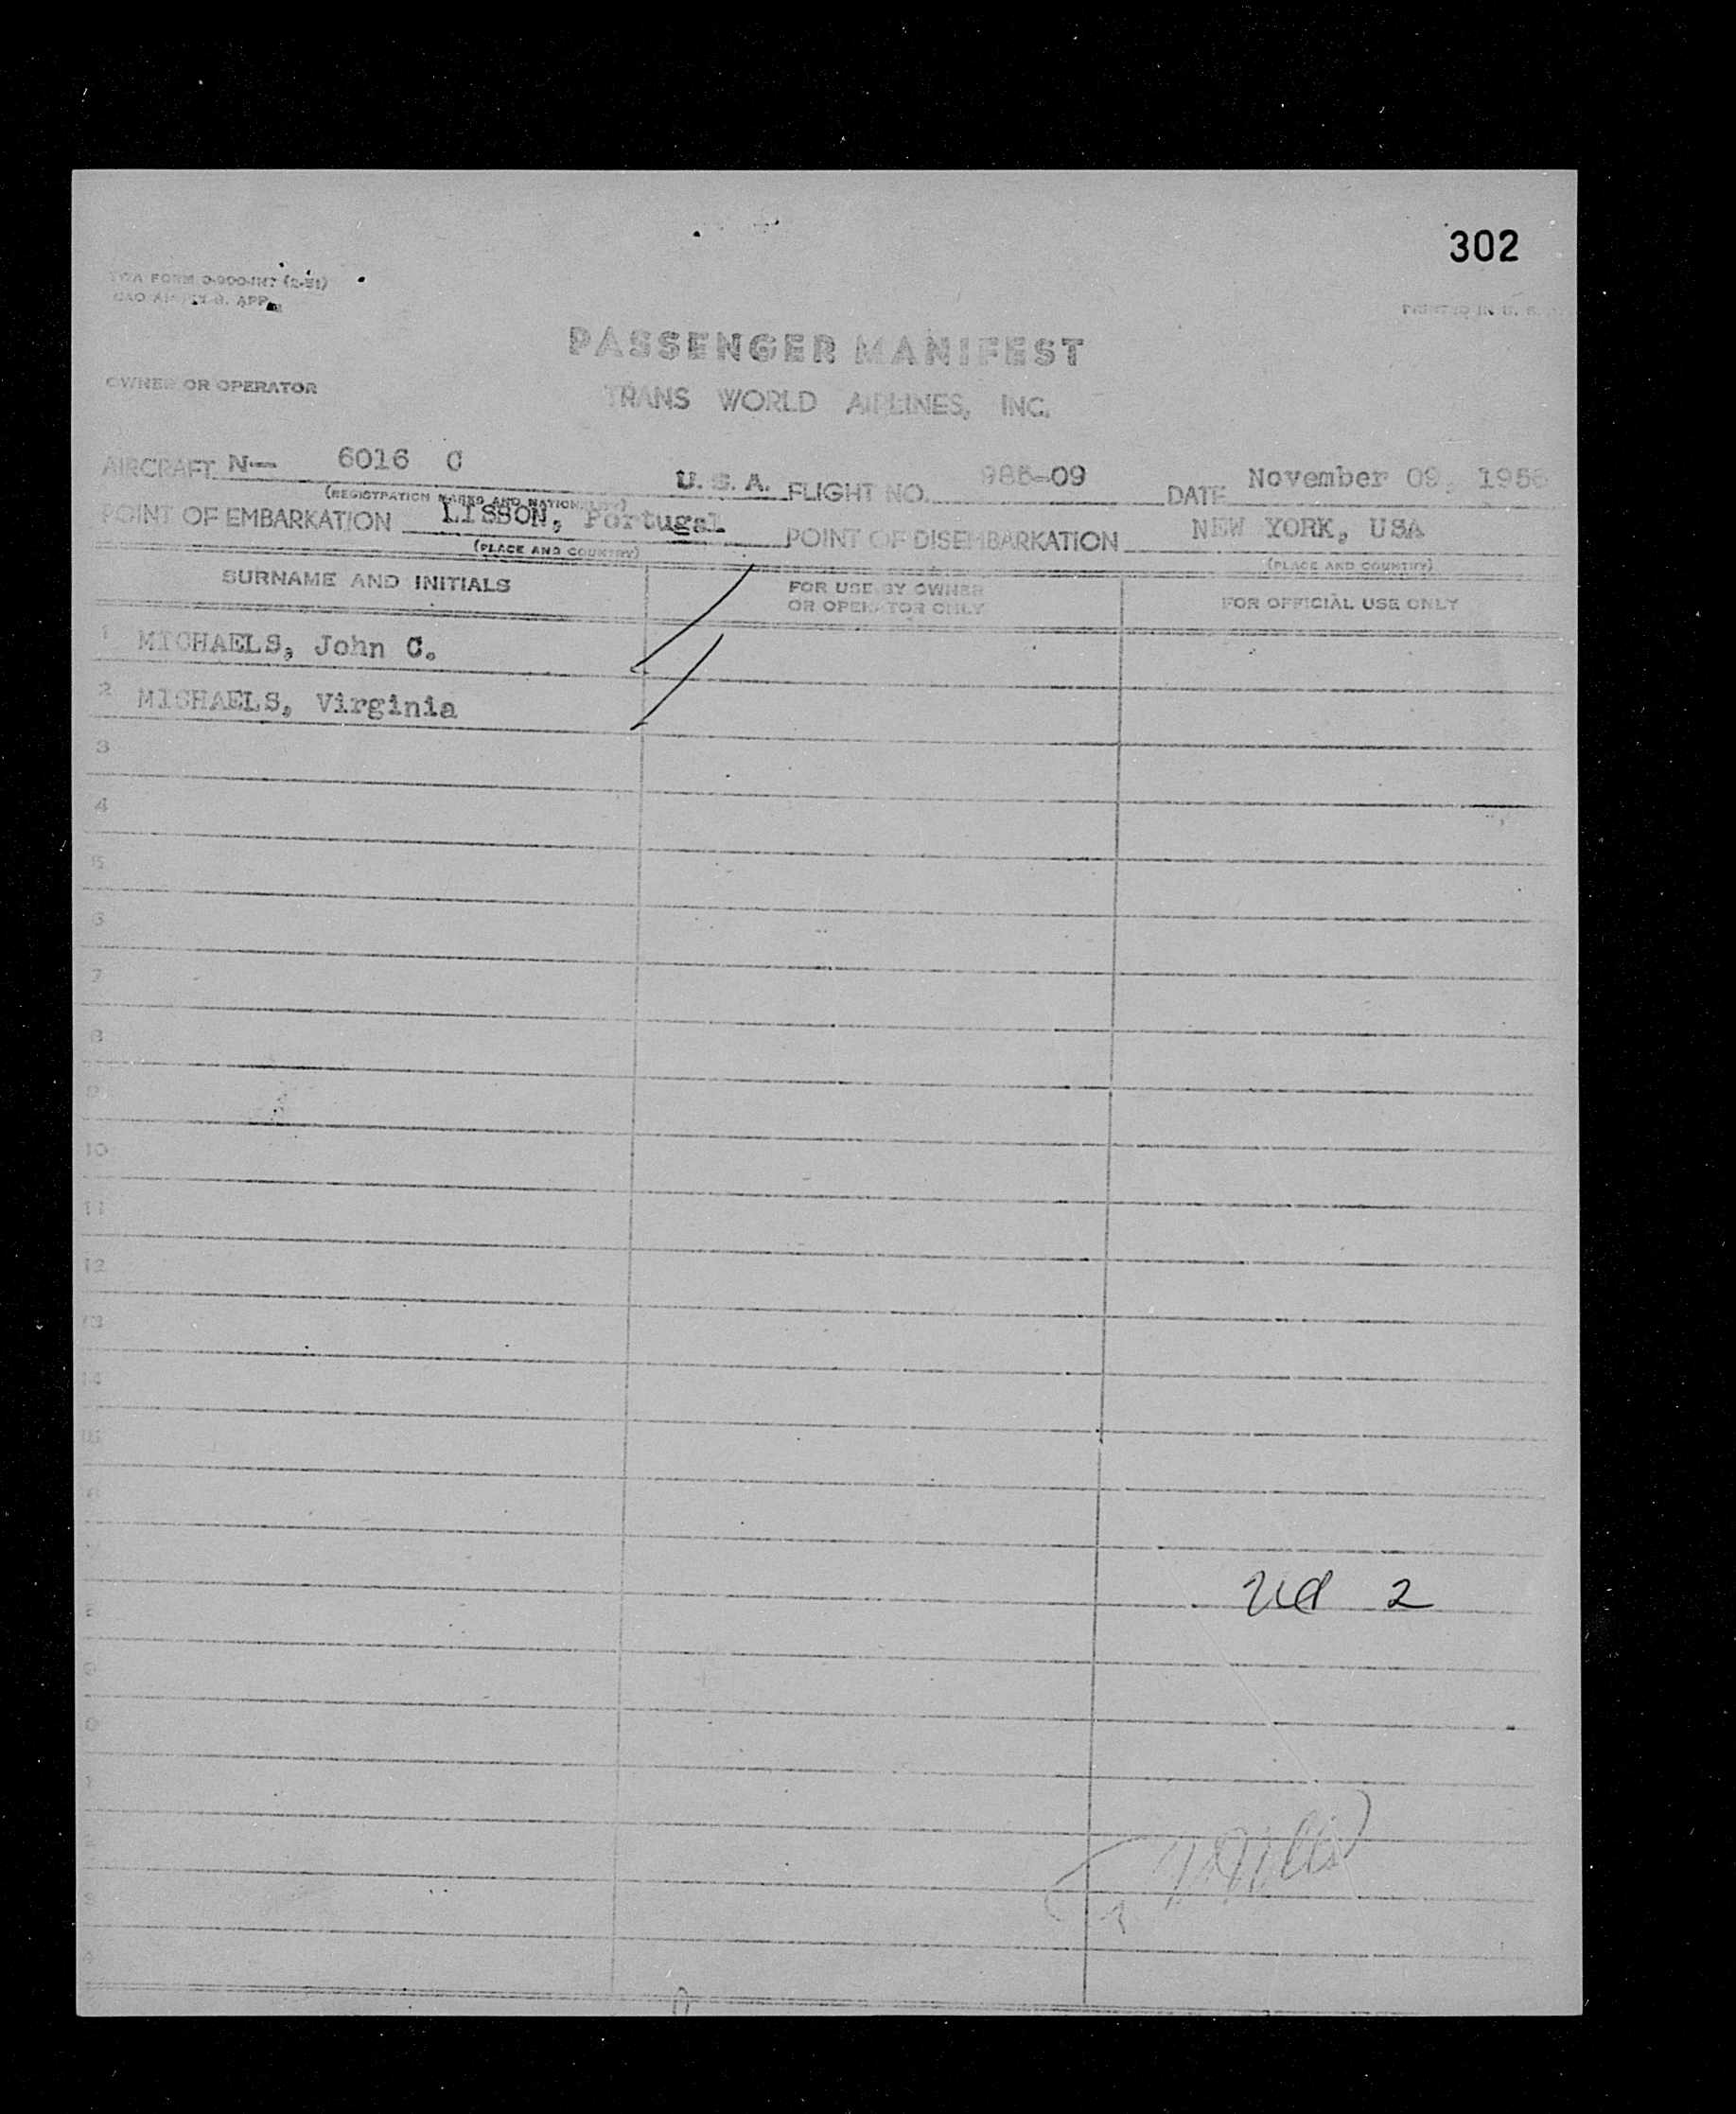 302
TWA FORM
PRINTED IN U. S.
PASSENGER MANIFEST
OWNER OR OPERATOR
TRANS WORLD AIRLINES, INC.
AIRCRAFT N— 6016 C U. S. A. FLIGHT NO. 985-09 DATE November 09, 1956
(REGISTRATION MARKS AND NATIONALITY)
POINT OF EMBARKATION LISBON, Portugal POINT OF DISEMBARKATION NEW YORK, USA
(PLACE AND COUNTRY) (PLACE AND COUNTRY)
SURNAME AND INITIALS FOR USE BY OWNER OR OPERATOR ONLY FOR OFFICIAL USE ONLY
1 MICHAELS, John C.
2 MICHAELS, Virginia
3
4
5
6
7
8
9
10
11
12
13
14
2